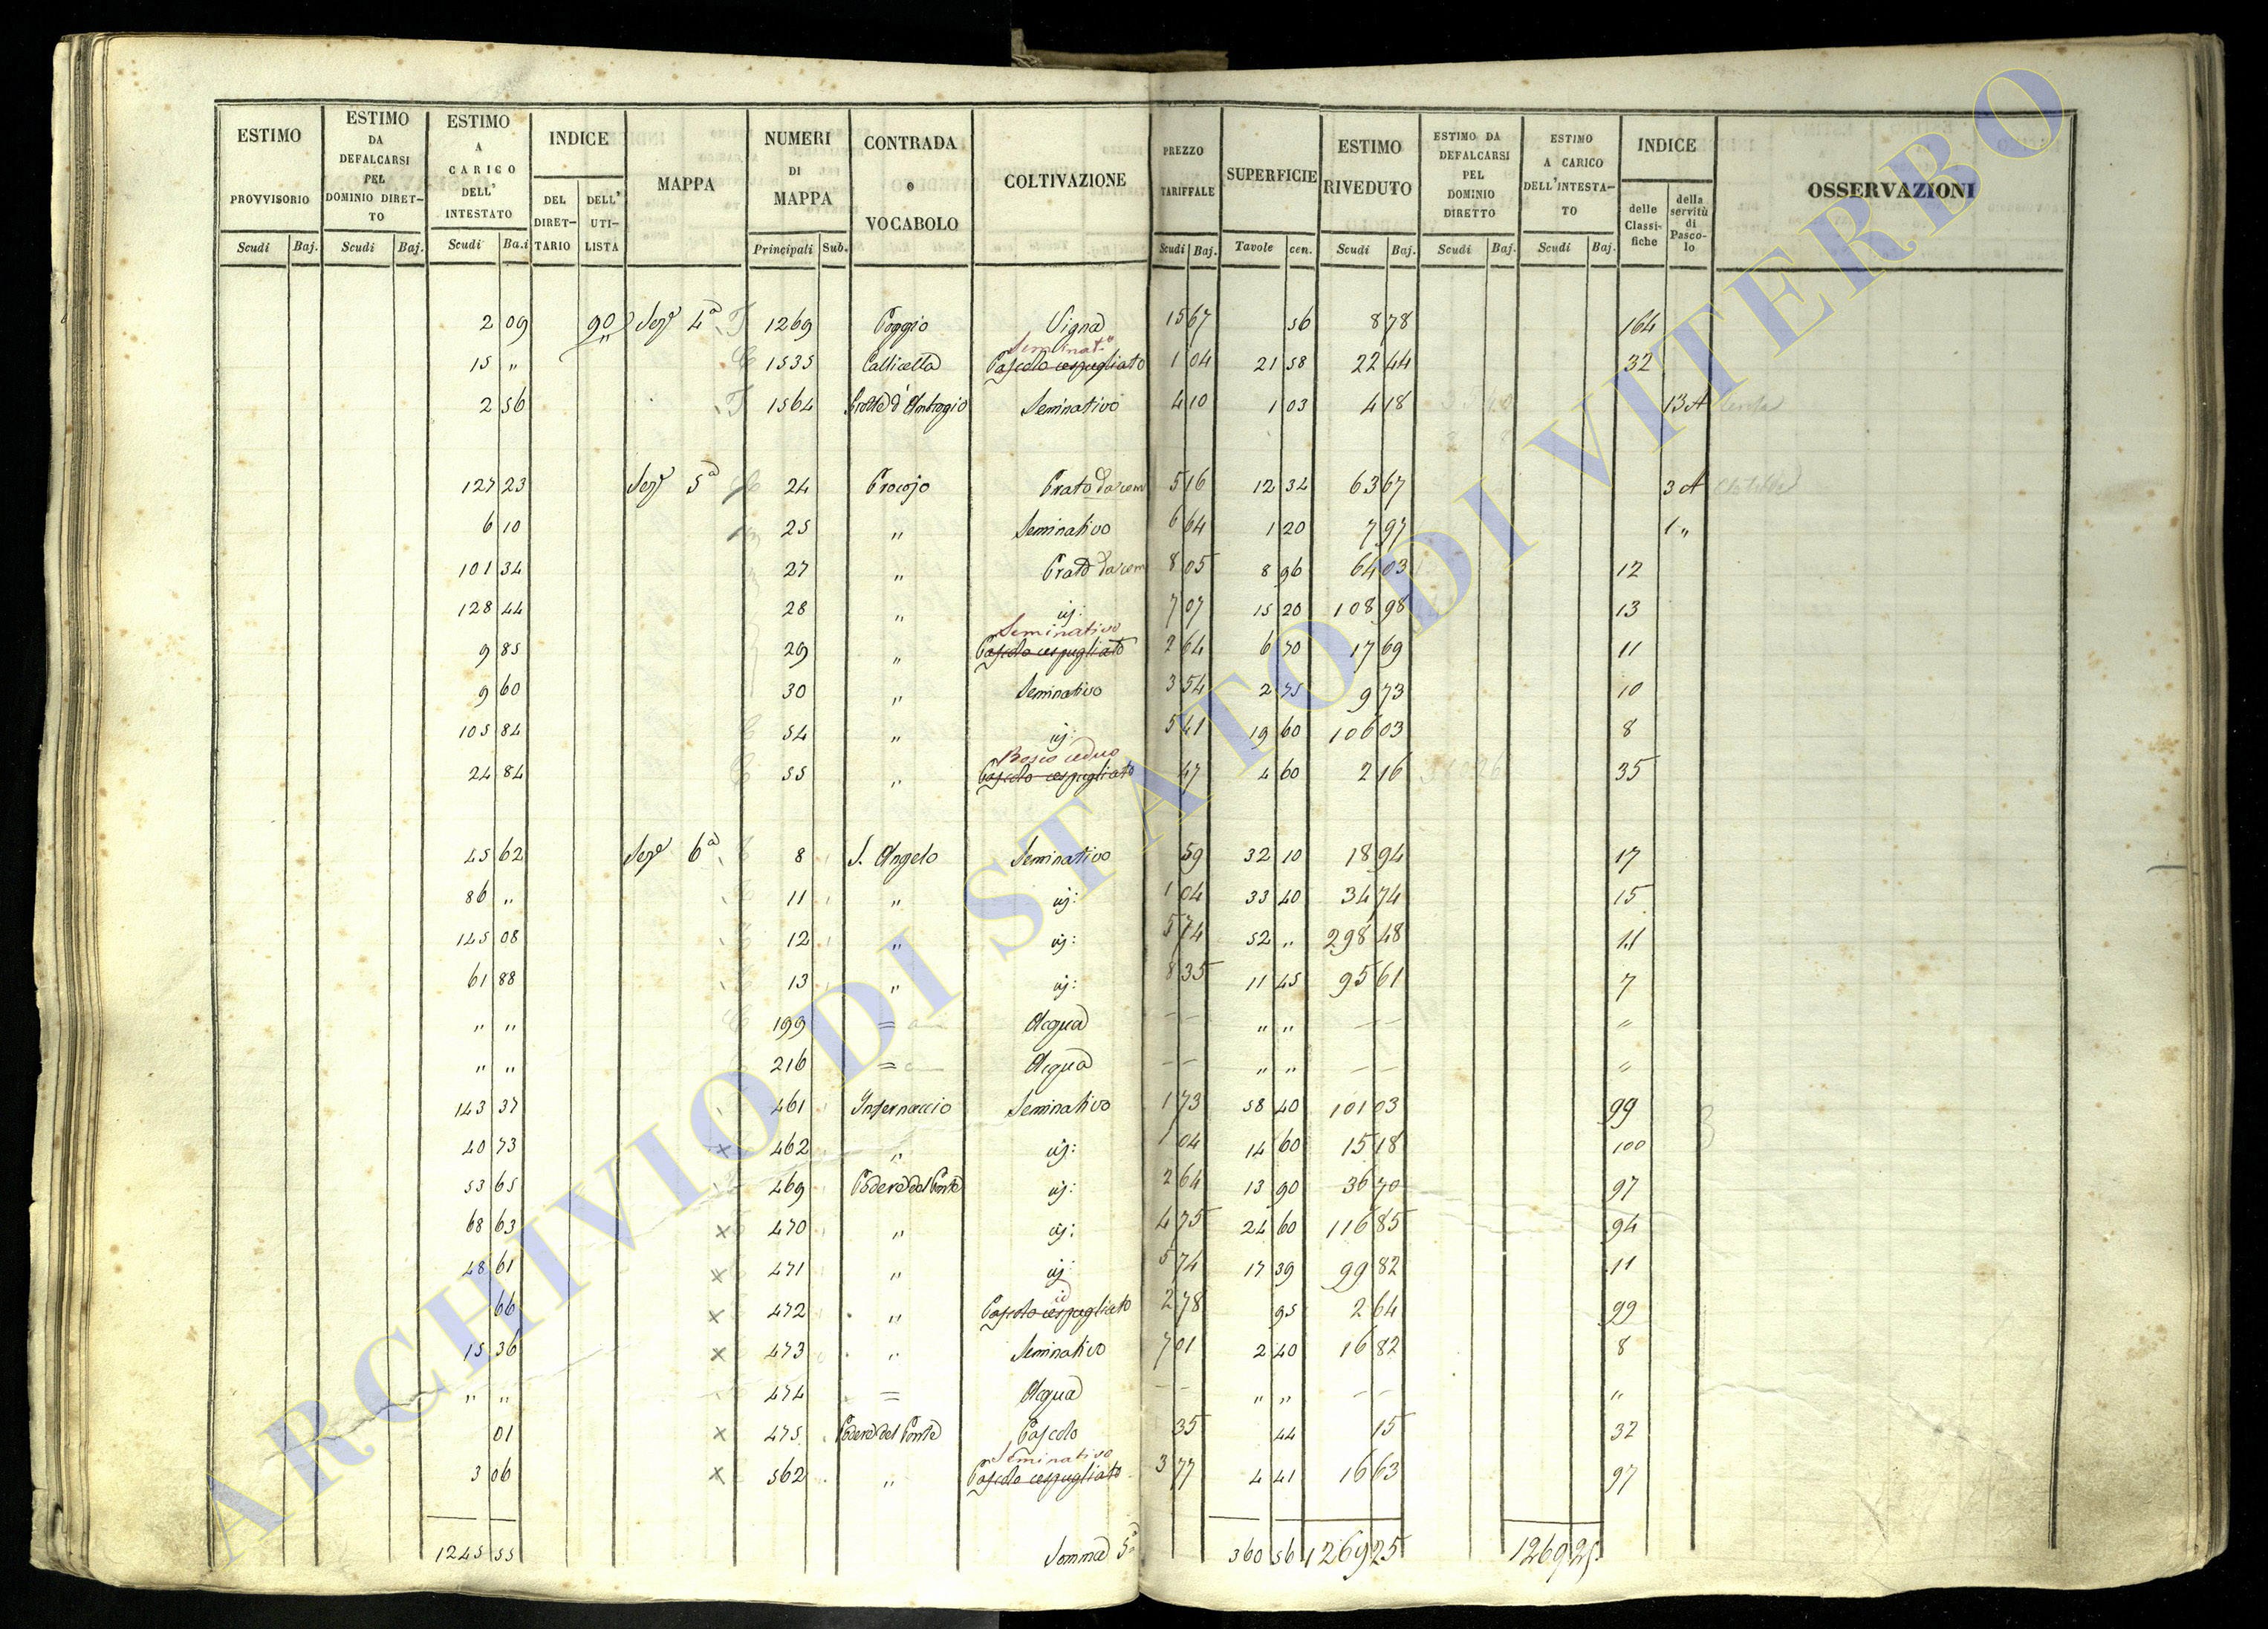 ESTIMO PROVVISORIO | ESTIMO DA DEFALCARSI PEL DOMINIO DIRETTO | ESTIMO A CARICO DELL' INTESTATO | INDICE | MAPPA | NUMERI DI MAPPA | CONTRADA o VOCABOLO | COLTIVAZIONE | PREZZO TARIFFALE | SUPERFICIE | ESTIMO RIVEDUTO | ESTIMO DA DEFALCARSI PEL DOMINIO DIRETTO | ESTIMO A CARICO DELL'INTESTATO | INDICE | OSSERVAZIONI
DEL DIRETTARIO | DELL' UTILISTA | delle Classifiche | della servitù di Pascolo
Scudi | Baj. | Scudi | Baj. | Scudi | Ba.i | Principali | Sub. | Scudi | Baj. | Tavole | cen. | Scudi | Baj. | Scudi | Baj. | Scudi | Baj.
2 09 | 90 | Sez.e 4a | 1269 | Poggio | Vigna | 15 67 | 56 | 8 78 | 164
Seminat.o
15 " | 1535 | Callicella | Pascolo cespugliato | 1 04 | 21 58 | 22 44 | 32
2 56 | 1564 | Grotte d'Ambrogio | Seminativo | 4 10 | 1 03 | 4 18 | 13 A
127 23 | Sez.e 5a | 24 | Procojo | Prato da vem | 5 16 | 12 34 | 63 67 | 3 A
6 10 | 25 | " | Seminativo | 6 64 | 1 20 | 7 97 | 1 "
101 34 | 27 | " | Prato da vem | 8 05 | 8 96 | 64 03 | 12
128 44 | 28 | " | id: | 7 07 | 15 20 | 108 98 | 13
Seminativo
9 85 | 29 | " | Pascolo cespugliato | 2 64 | 6 70 | 17 69 | 11
9 60 | 30 | " | Seminativo | 3 54 | 2 75 | 9 73 | 10
105 84 | 54 | " | id: | 5 41 | 19 60 | 106 03 | 8
Bosco ceduo
24 84 | 55 | " | Pascolo cespugliato | 47 | 4 60 | 2 16 | 35
45 62 | Sez.e 6a | 8 | S. Angelo | Seminativo | 59 | 32 10 | 18 94 | 17
86 " | 11 | " | id: | 1 04 | 33 40 | 34 74 | 15
145 08 | 12 | " | id: | 5 74 | 52 " | 298 48 | 11
61 88 | 13 | " | id: | 8 35 | 11 45 | 95 61 | 7
" " | 199 | = | Acqua | — — | " " | — — | "
" " | 216 | = | Acqua | — — | " " | — — | "
143 37 | 461 | Infernaccio | Seminativo | 1 73 | 58 40 | 101 03 | 99
40 73 | × | 462 | " | id: | 1 04 | 14 60 | 15 18 | 100
53 65 | 469 | Podere del Ponte | id: | 2 64 | 13 90 | 36 70 | 97
68 63 | × | 470 | " | id: | 4 75 | 24 60 | 116 85 | 94
48 61 | × | 471 | " | id | 5 74 | 17 39 | 99 82 | 11
id
66 | × | 472 | " | Pascolo cespugliato | 2 78 | 95 | 2 64 | 99
15 36 | × | 473 | " | Seminativo | 7 01 | 2 40 | 16 82 | 8
" " | 474 | = | Acqua | — — | " " | — — | "
01 | × | 475 | Podere del Ponte | Pascolo | 35 | 44 | 15 | 32
Seminativo
3 06 | × | 562 | " | Pascolo cespugliato | 3 77 | 4 41 | 16 63 | 97
1245 55 | Somma Sa | 360 56 | 1269 25 | 1269 25
ARCHIVIO DI STATO DI VITERBO